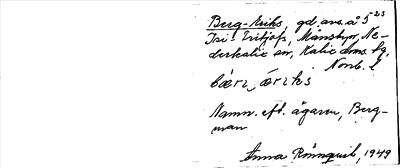 Berg-Eriks, gd. ans. å 5²³
Tri Fritjofs, Månsbyn, Ne-
derkalix sn, Kalix doms. hg,
Norrb. l
bærj ærıks
Namn. eft. ägaren, Berg-
man
Anna Rönnquist, 1949